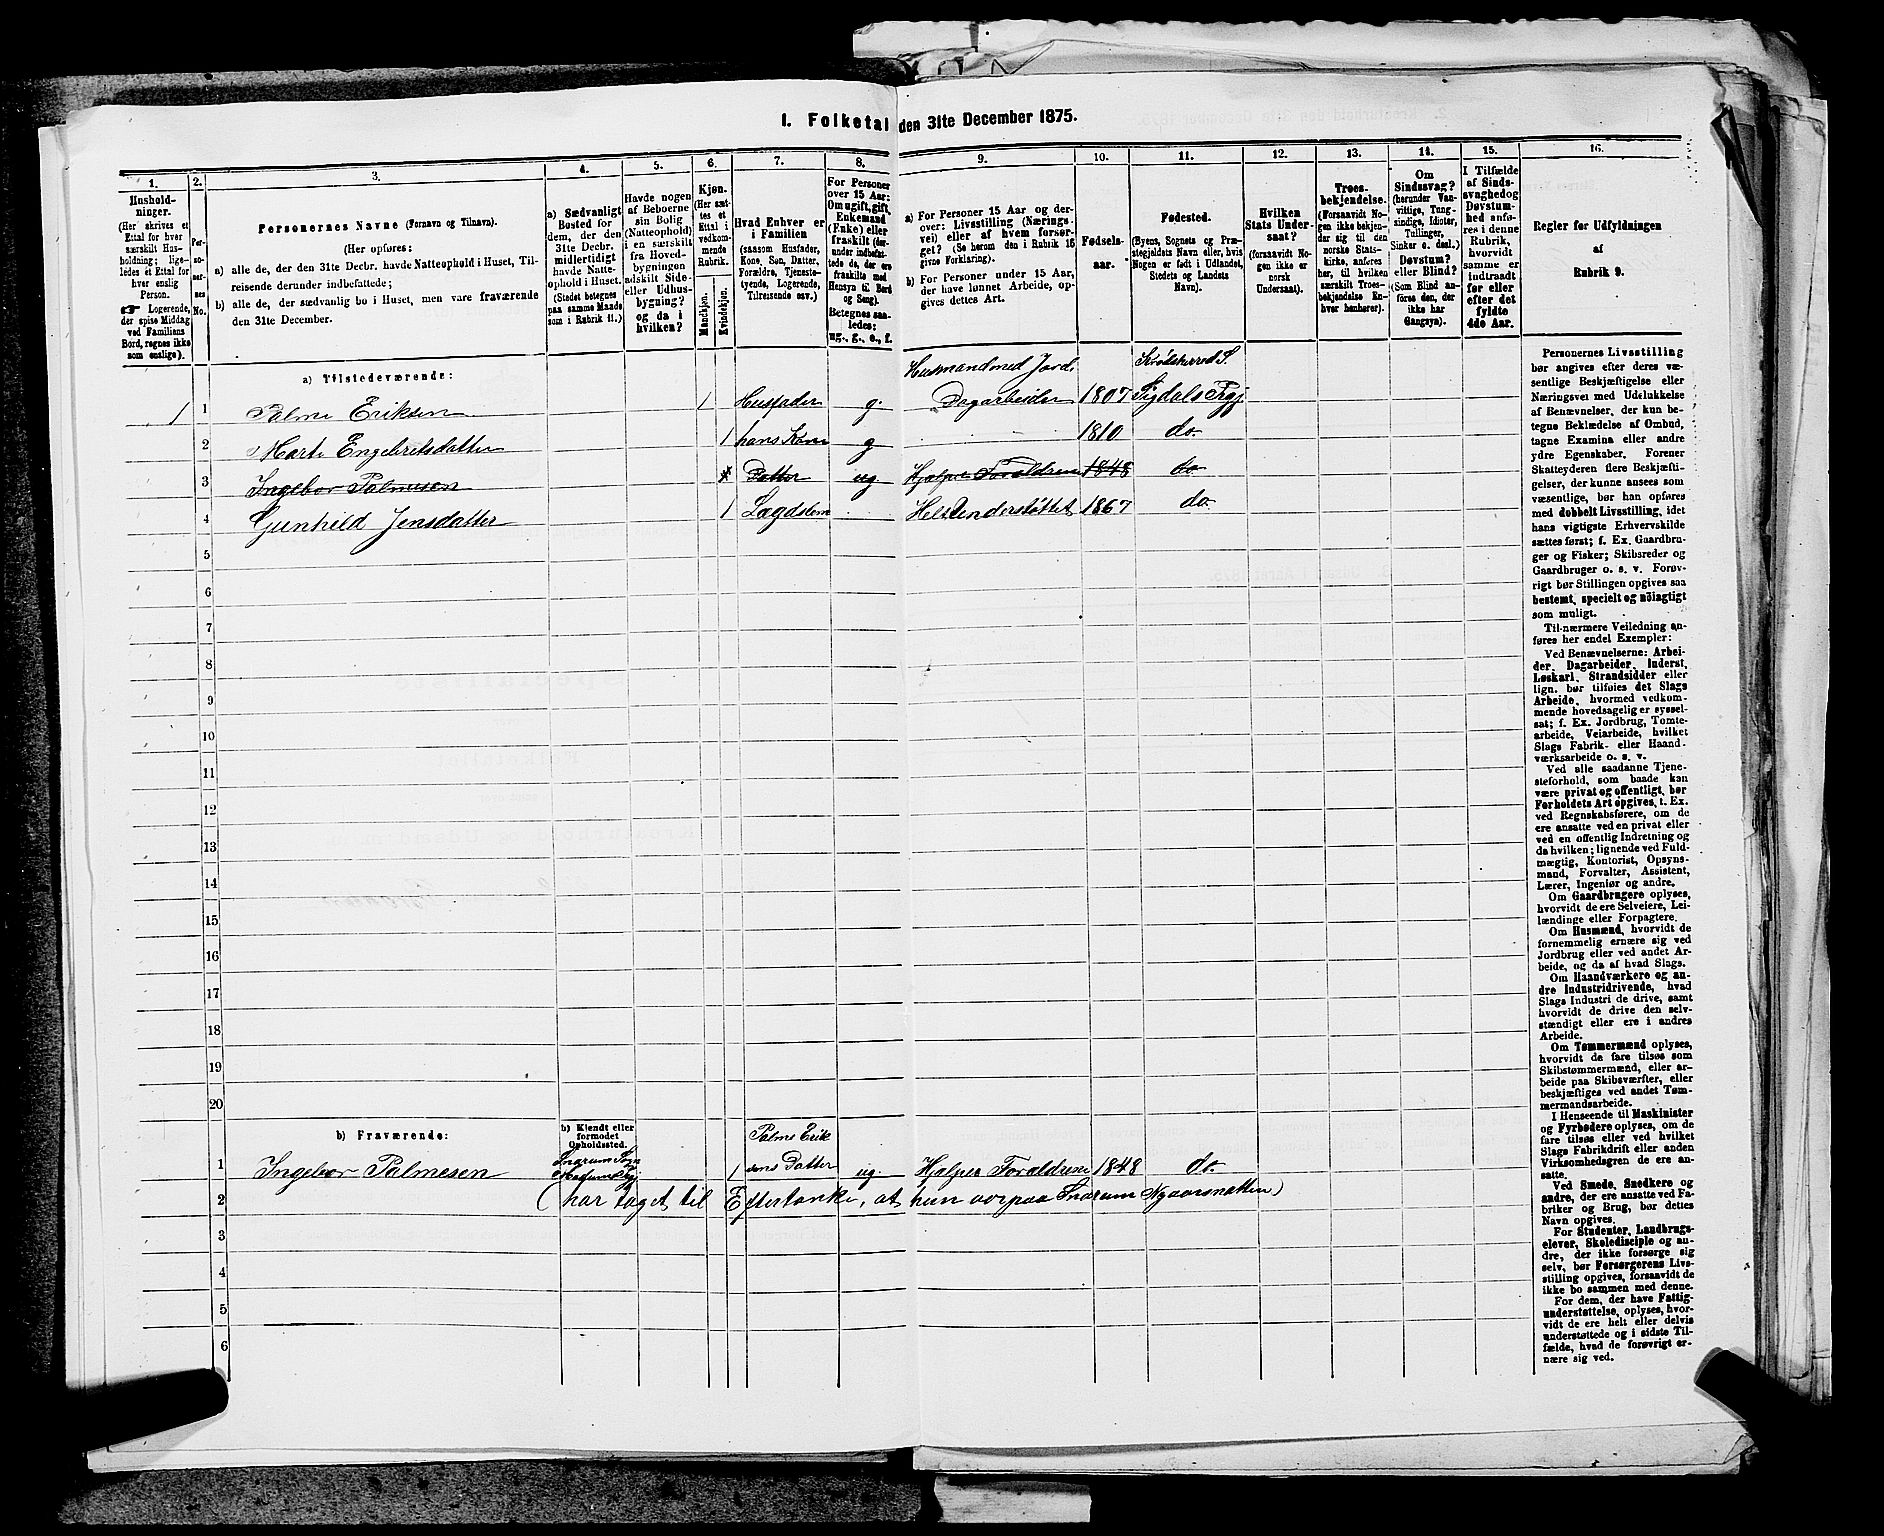 I. Folketal den 31te December 1875.
1. 2. 3. 4. 5. 6. 7. 8. 9. 10. 11. 12. 13. 14. 15. 16.
Husholdninger.
(Her skrives et
Ettal for hver
særskilt Husholdning;
ligeledes et Ettal for
hver enslig
Person.
Logerende,
der spise Middag
ved Familiens
Bord, regnes ikke
som enslige).
Personernes No.
Personernes Navne (Fornavn og Tilnavn).
(Her opføres:
a) alle de, der den 31te Decbr. havde Natteophold i Huset, Tilreisende derunder indbefattede;
b) alle de, der sædvanlig bo i Huset, men vare fraværende
den 31te December.
a) Sædvanligt
Bosted for
dem, der den
31te Decbr.
midlertidigt
havde Natteophold i Huset.
(Stedet betegnes
paa samme Maade
som i Rubrik 11.)
Havde nogen
af Beboerne
sin Bolig
(Natteophold)
i en særskilt
fra Hovedbygningen
adskilt Side-
eller Udhusbygning?
og da i
hvilken?
Kjøn.
(Her sættes et
Ettal i
vedkommende
Rubrik.
Mandkjøn.
Kvindekjøn.
Hvad Enhver er
i Familien
(saasom Husfader,
Kone, Søn, Datter,
Forældre, Tjenestetyende, Logerende,
Tilreisende osv.)
For Personer
over 15 Aar:
Om ugift, gift,
Enkemand
(Enke) eller
fraskilt (derunder indbefattede de, der ere
fraskilte med
Hensyn til Bord
og Seng).
Betegnes saaledes:
ug., g., e., f.
a) For Personer 15 Aar og derover: Livsstilling (Næringsvei) eller af hvem forsørget? (Se herom den i Rubrik 16
givne Forklaring).
b) For Personer under 15 Aar,
der have lønnet Arbeide, opgives dettes Art.
Fødselsaar.
Fødested.
(Byens, Sognets og Præstegjeldets Navn eller, hvis
Nogen er født i Udlandet,
Stedets og Landets
Navn).
Hvilken
Stats Undersaat?
(forsaavidt Nogen ikke er
norsk
Undersaat).
Troesbekjendelse.
(Forsaavidt Nogen ikke bekjender sig til den
norske Statskirke, anføres
her, til hvilken
særskilt Troesbekjendelse Enhver henhører).
Om
Sindssvag?
(herunder Vanvittige, Tungsindige, Idioter,
Tullinger,
Sinker o. desl.)
Døvstum?
eller Blind?
(Som Blind anføres den, der
ikke har
Gangsyn).
I Tilfælde
af Sindssvaghed og
Døvstumhed anføres i denne
Rubrik,
hvorvidt
samme er
indtraadt
før eller
efter det
fyldte
4de Aar.
Regler for Udfyldningen
af
Rubrik 9.
a) Tilstedeværende:
Husmand med Jord, Krødsherred S.
1 1 Palme Eriksen 1 Husfader g. Dagarbeider 1807 Sigdals Prgj
2 Marte Engebretsdatter 1 hans Kone g 1810 do.
3 Ingebor Palmesen Datter ug. Hjælper Foraldrene 1848 do
4 Gunhild Jensdatter 1 Lægdslem Helt Understøttet 1867 do.
5
6
7
8
9
10
11
12
13
14
15
16
17
18
19
20
b) Fraværende:
b) Kjendt eller
formodet
Opholdssted.
Palme Erik
Snarum Sogn
1 Ingebor Palmesen Modums Pgj 1 sens Datter ug. Hjælper Foraldrene 1848 do.
2 (har taget til Eftertanke, at hun var paa Snarum Nyaarsnatten)
3
4
5
6
Personernes Livsstilling
bør angives efter deres væsentlige Beskjæftigelse eller
Næringsvei med Udelukkelse
af Benævnelser, der kun betegne Beklædelse af Ombud,
tagne Examina eller andre
ydre Egenskaber. Forener
Skatteyderen flere Beskjæftigelser, der kunne ansees som
væsentlige, bør han opføres
med dobbelt Livsstilling, idet
hans vigtigste Erhvervskilde
sættes først; f. Ex. Gaardbruger og Fisker; Skibsreder og
Gaardbruger o. s. v. Forøvrigt bør Stillingen opgives saa
bestemt, specielt og nöiagtigt
som muligt.
Til nærmere Veiledning anføres her endel Exempler:
Ved Benævnelserne: Arbeider, Dagarbeider, Inderst,
Løskarl, Strandsidder eller
lign. bør tilføies det Slags
Arbeide, hvormed vedkommende hovedsagelig er sysselsat; f. Ex. Jordbrug, Tomtearbeide, Veiarbeide, hvilket
Slags Fabrik- eller Haandværksarbeide o. s. v.
Ved alle saadanne Tjenesteforhold, som baade kan
være privat og offentligt, bør
Forholdets Art opgives, t. Ex.
ved Regnskabsførere, om de
ere ansatte ved en privat eller
ved en offentlig Indretning og
da hvilken; lignende ved Fuldmægtig, Kontorist, Opsynsmand, Forvalter, Assistent,
Lærer, Ingeniør og andre.
Om Gaardbrugere oplyses,
hvorvidt de ere Selveiere, Leilændinge eller Forpagtere.
Om Husmænd, hvorvidt de
fornemmelig ernære sig ved
Jordbrug eller ved andet Arbeide, og da af hvad Slags.
Om Haandværkere og andre Industridrivende, hvad
Slags Industri de drive, samt
hvorvidt de drive den selvstændigt eller ere i andres
Arbeide.
Om Tømmermænd oplyses,
hvorvidt de fare tilsøs som
Skibstømmermænd, eller arbeide paa Skibsværfter, eller
beskjæftiges ved andet Tømmermandsarbeide.
I Henseende til Maskinister
og Fyrbødere oplyses, om de
fare tilsøs eller ved hvilket
Slags Fabrikdrift eller anden
Virksomhedsgren de ere ansatte.
Ved Smede, Snedkere og
andre, der ere ansatte ved Fabriker og Brug, bør dettes
Navn opgives.
For Studenter, Landbrugselever, Skoledisciple og andre, der ikke forsørge sig
selv, bør Forsørgerens Livsstilling opgives, forsaavidt de
ikke bo sammen med denne.
For dem, der have Fattigunderstøttelse, oplyses, hvorvidt de ere helt eller delvis
understøttede og i sidste Tilfælde, hvad de forøvrigt ernære sig ved.